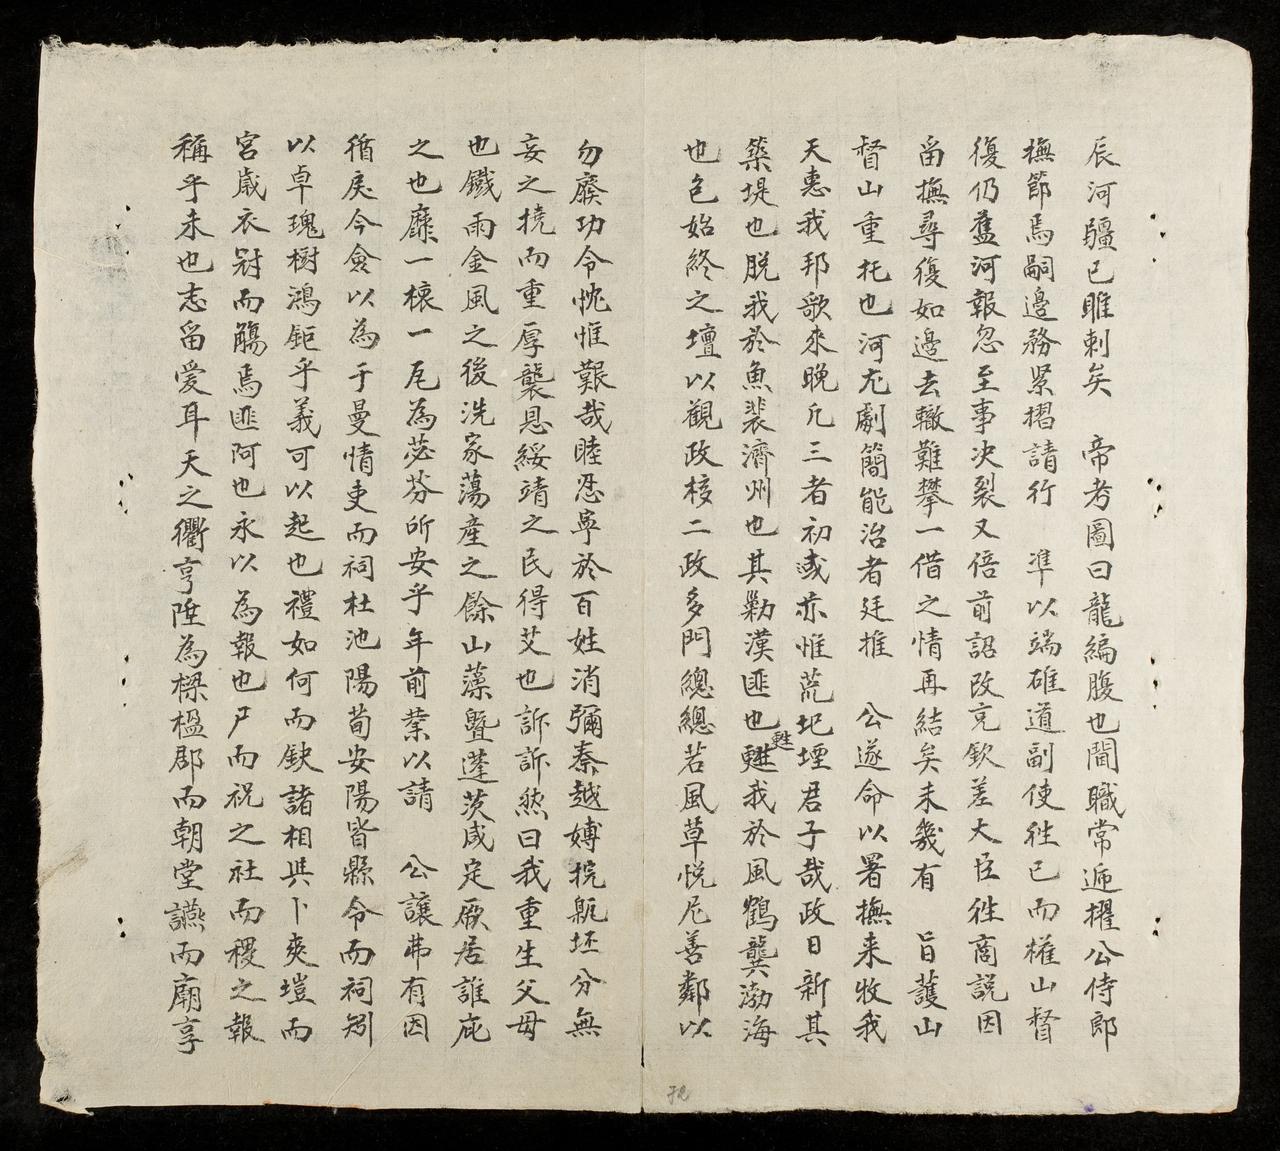 辰河疆已雎刺矣　帝考圖曰龍編腹也間職常遞擢公侍郎
撫節焉嗣邊務緊摺請行　準以端碓道副使徃已而權山督
復仍蓋河報忽至事决裂又倍前詔改克欽差大臣徃商説因
畱撫尋復如邊去轍難攀一借之情再結矣未幾有　旨護山
督山重托也河尢劇簡能治者廷推　公遂命以署撫来牧我
天惠我邦歌来晩凢三者初或亦惟荒圯堙君子哉政日新其
築堤也脱我於魚裴濟州也其勦漢匪也甦我於風鶴龔渤海
甦
也包始終之壇以觀政核二政多門總總若風草悅尼善鄰以
勿廢功令忱惟艱哉睦忍寧於百姓消彌秦越嫥捖瓻坯分無
妄之撓而重厚襲恩綏靖之民得艾也訴訴然曰我重生父母
也鐡雨金風之後洗家蕩産之餘山藻曁蓬茨咸定厥居誰庇
之也靡一榱一瓦為苾芬所安乎年前業以請　公讓弗有因
循戾今僉以為于曼情吏而祠杜池陽荀安陽皆縣令而祠矧
以卓瑰樹鴻鉅乎義可以起也禮如何而缺諸相與卜爽塏而
宮歲衣冠而觴焉匪阿也永以為報也尸而祝之社而稷之報
稱乎未也志畱愛耳天之衢亨陞為樑楹郡而朝堂讌而廟享